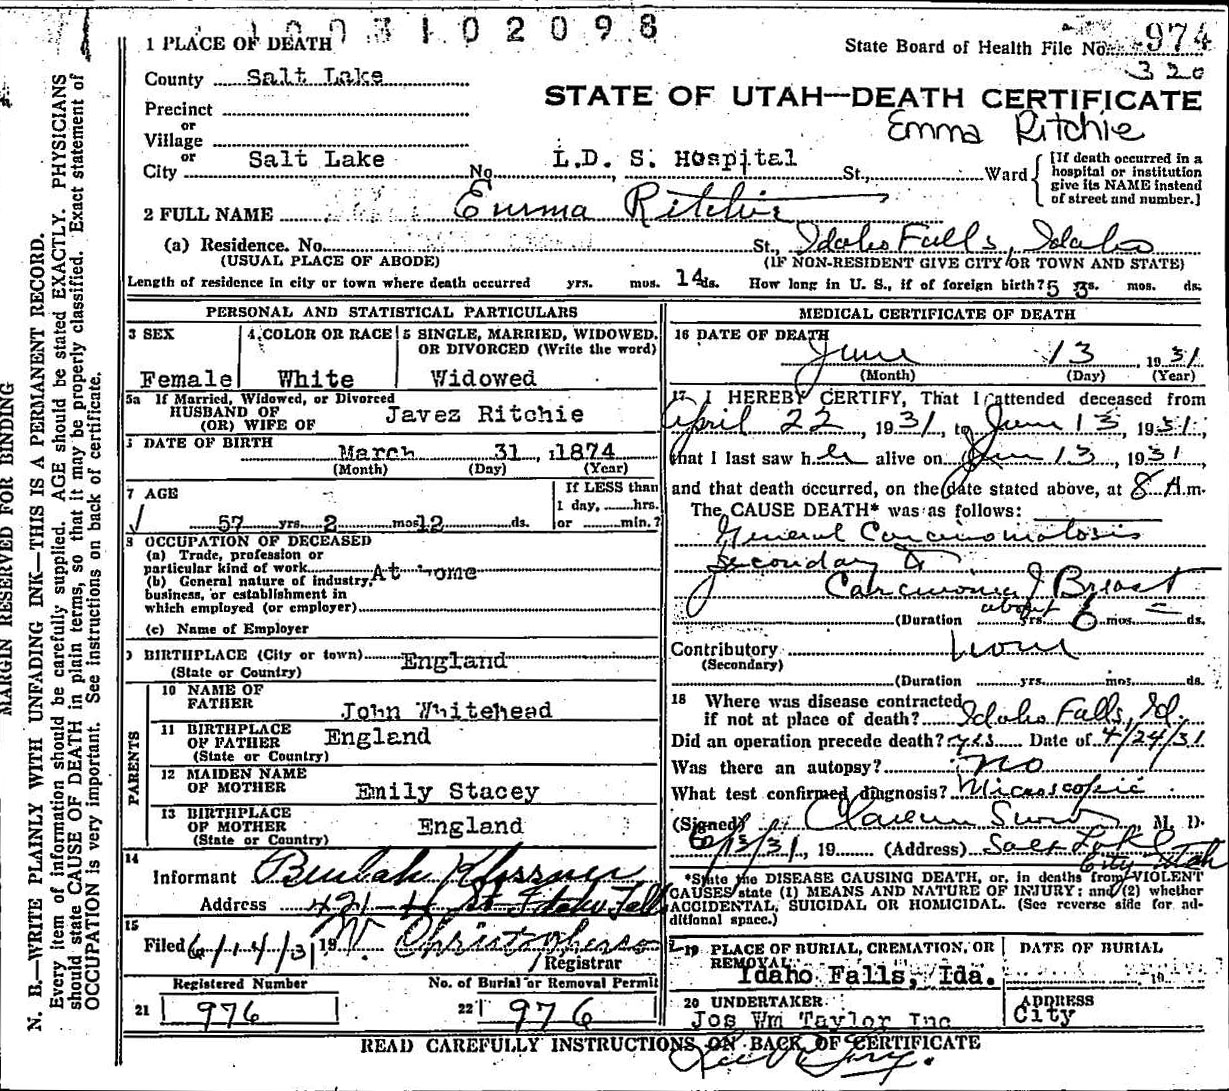 1003102098
1 PLACE OF DEATH
State Board of Health File No. 974
320
County Salt Lake
STATE OF UTAH—DEATH CERTIFICATE
Precinct
or
Village
Emma Ritchie
or
City Salt Lake No. L.D. S. Hospital St., Ward
[If death occurred in a hospital or institution give its NAME instead of street and number.]
2 FULL NAME Emma Ritchie
(a) Residence. No. St., Idaho Falls, Idaho
(USUAL PLACE OF ABODE) (IF NON-RESIDENT GIVE CITY OR TOWN AND STATE)
Length of residence in city or town where death occurred yrs. mos. 14 ds. How long in U. S., if of foreign birth? 53 yrs. mos. ds.
PERSONAL AND STATISTICAL PARTICULARS
3 SEX
Female
4 COLOR OR RACE
White
5 SINGLE, MARRIED, WIDOWED, OR DIVORCED (Write the word)
Widowed
5a If Married, Widowed, or Divorced
HUSBAND OF
(OR) WIFE OF Javez Ritchie
DATE OF BIRTH March 31, 1874
(Month) (Day) (Year)
7 AGE
57 yrs. 2 mos 12 ds.
If LESS than
1 day, hrs.
or min.?
8 OCCUPATION OF DECEASED
(a) Trade, profession or
particular kind of work At home
(b) General nature of industry,
business, or establishment in
which employed (or employer)
(c) Name of Employer
9 BIRTHPLACE (City or town) England
(State or Country)
PARENTS
10 NAME OF
FATHER John Whitehead
11 BIRTHPLACE
OF FATHER England
(State or Country)
12 MAIDEN NAME
OF MOTHER Emily Stacey
13 BIRTHPLACE
OF MOTHER England
(State or Country)
14
Informant Beulah
Address 421-4 St Idaho Falls
15
Filed 6/14/31 19 W. Christopherson
Registrar
Registered Number
21 976
No. of Burial or Removal Permit
22 976
MEDICAL CERTIFICATE OF DEATH
16 DATE OF DEATH
June 13 1931
(Month) (Day) (Year)
17 I HEREBY CERTIFY, That I attended deceased from
April 22, 1931, to June 13, 1931,
that I last saw her alive on Jun 13, 1931,
and that death occurred, on the date stated above, at 8 A.m.
The CAUSE DEATH* was as follows:
General Carcinomatosis
secondary to
Carcinoma of Breast
about
(Duration yrs. 6 mos. ds.
Contributory none
(Secondary)
(Duration yrs. mos. ds.
18 Where was disease contracted
if not at place of death? Idaho Falls, Id.
Did an operation precede death? yes Date of 4/24/31
Was there an autopsy? no
What test confirmed diagnosis? Microscopic
(Signed) M. D.
6/13/31, 19 (Address) Salt Lake
City Utah
*State the DISEASE CAUSING DEATH, or, in deaths from VIOLENT
CAUSES state (1) MEANS AND NATURE OF INJURY: and (2) whether
ACCIDENTAL, SUICIDAL OR HOMICIDAL. (See reverse side for ad-
ditional space.)
19 PLACE OF BURIAL, CREMATION, OR
REMOVAL
Idaho Falls, Ida.
DATE OF BURIAL
19
20 UNDERTAKER
Jos Wm Taylor Inc
ADDRESS
City
READ CAREFULLY INSTRUCTIONS ON BACK OF CERTIFICATE
MARGIN RESERVED FOR BINDING
N. B.—WRITE PLAINLY WITH UNFADING INK—THIS IS A PERMANENT RECORD.
Every item of information should be carefully supplied. AGE should be stated EXACTLY. PHYSICIANS
should state CAUSE OF DEATH in plain terms, so that it may be properly classified. Exact statement of
OCCUPATION is very important. See instructions on back of certificate.